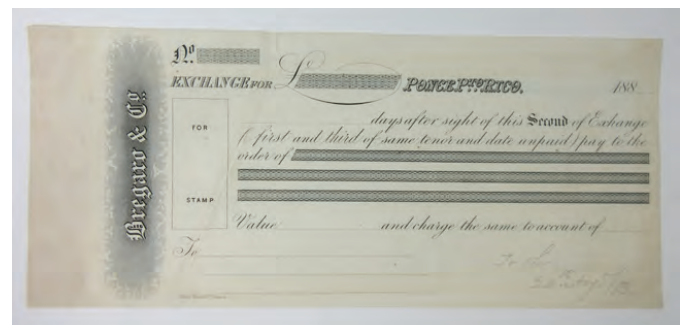 Bregaro & Co.
No.
EXCHANGE FOR £ PONCE, PTO. RICO. 188
FOR
STAMP
days after sight of this Second of Exchange
( first and third of same tenor and date unpaid ) pay to the
order of
Value and charge the same to account of
To